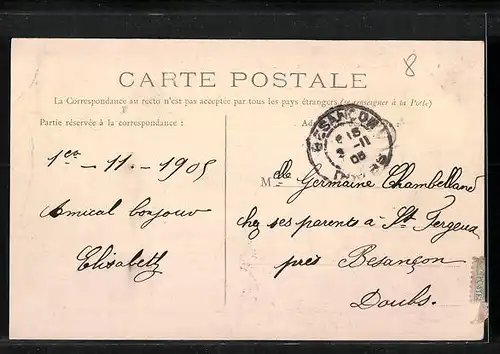 8
CARTE POSTALE
La Correspondance au recto n'est pas acceptée par tous les pays étrangers (se renseigner à la Poste)
Partie réservée à la correspondance :
BESANCON
15
2 -11
05
1er - 11 - 1905
Amical bonjour
Elisabeth
Mdlle Germaine Chambelland
chez ses parents à St Fergeux
près Besançon
Doubs.